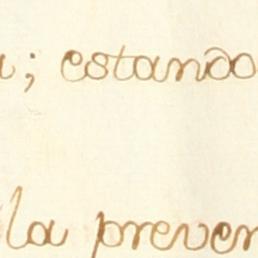 ; estando
la preven